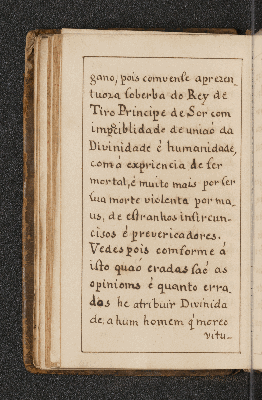 gano, pois comvense aprezen_
tuoza soberba do Rey de
Tiro Principe de Sor com
impsiblidade de uniaõ da
Divinidade é humanidade,
com á expriencia de ser
mortal, é muito mais por ser
sua morte violenta por ma_
us, de estranhos insircun_
cisos é prevericadores.
Vedes pois comforme á
isto quaõ eradas saõ as
opinioins é quanto erra_
dos he atribuir Divinida
de, a hum homem q̃ moreo
vitu_